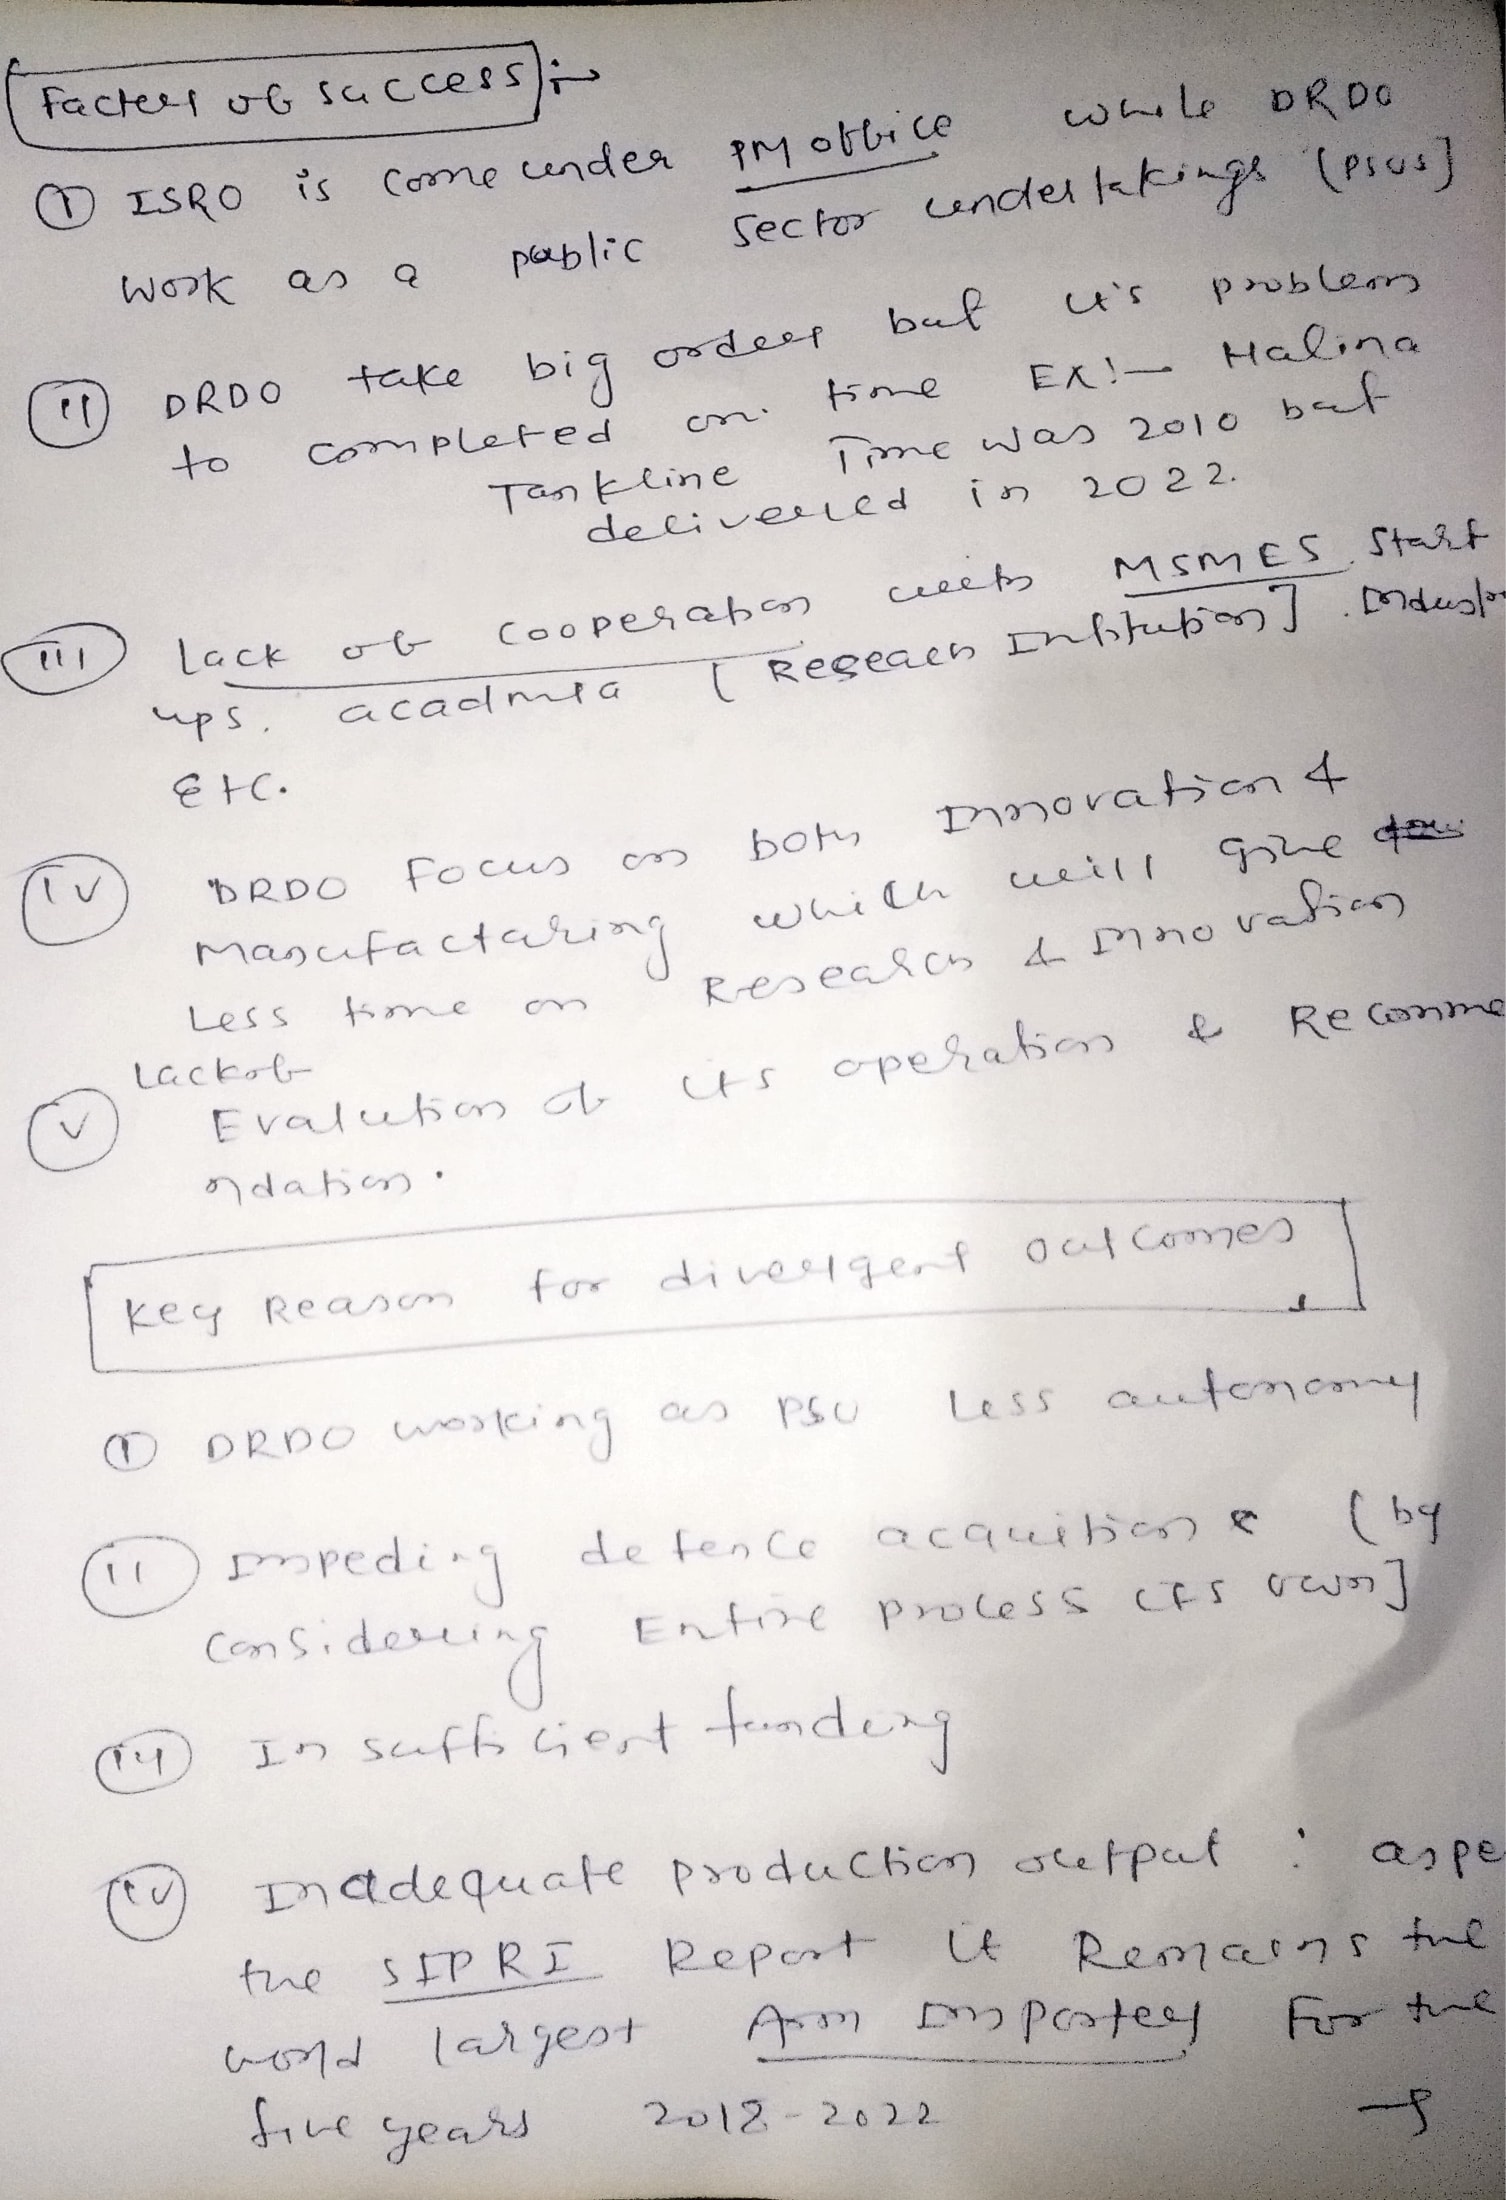 Factors of success :-
(I) ISRO is come under PM office while DRDO
work as a public sector undertakings (PSUs]
(II) DRDO take big orders but it's problem
to completed on time EX:- Halina
Tankline Time was 2010 but
delivered in 2022.
(III) Lack of cooperation with MSMES, Start
ups, acadmia [Research Institution]. Industr
Etc.
(IV) DRDO Focus on both Innovation &
Manufacturing which will give
Less time on Research & Innovation
Lack of
(V) Evalution of its operation & Recomme
ndation.
Key Reason for divergent outcomes
(I) DRDO working as PSU Less autonomy
(II) Impeding defence acquition (by
considering Entire process its own]
(III) Insufficient funding
(IV) Inadequate production output : as pe
the SIPRI Report it Remains the
world largest Arm Importer For the
five years 2018-2022